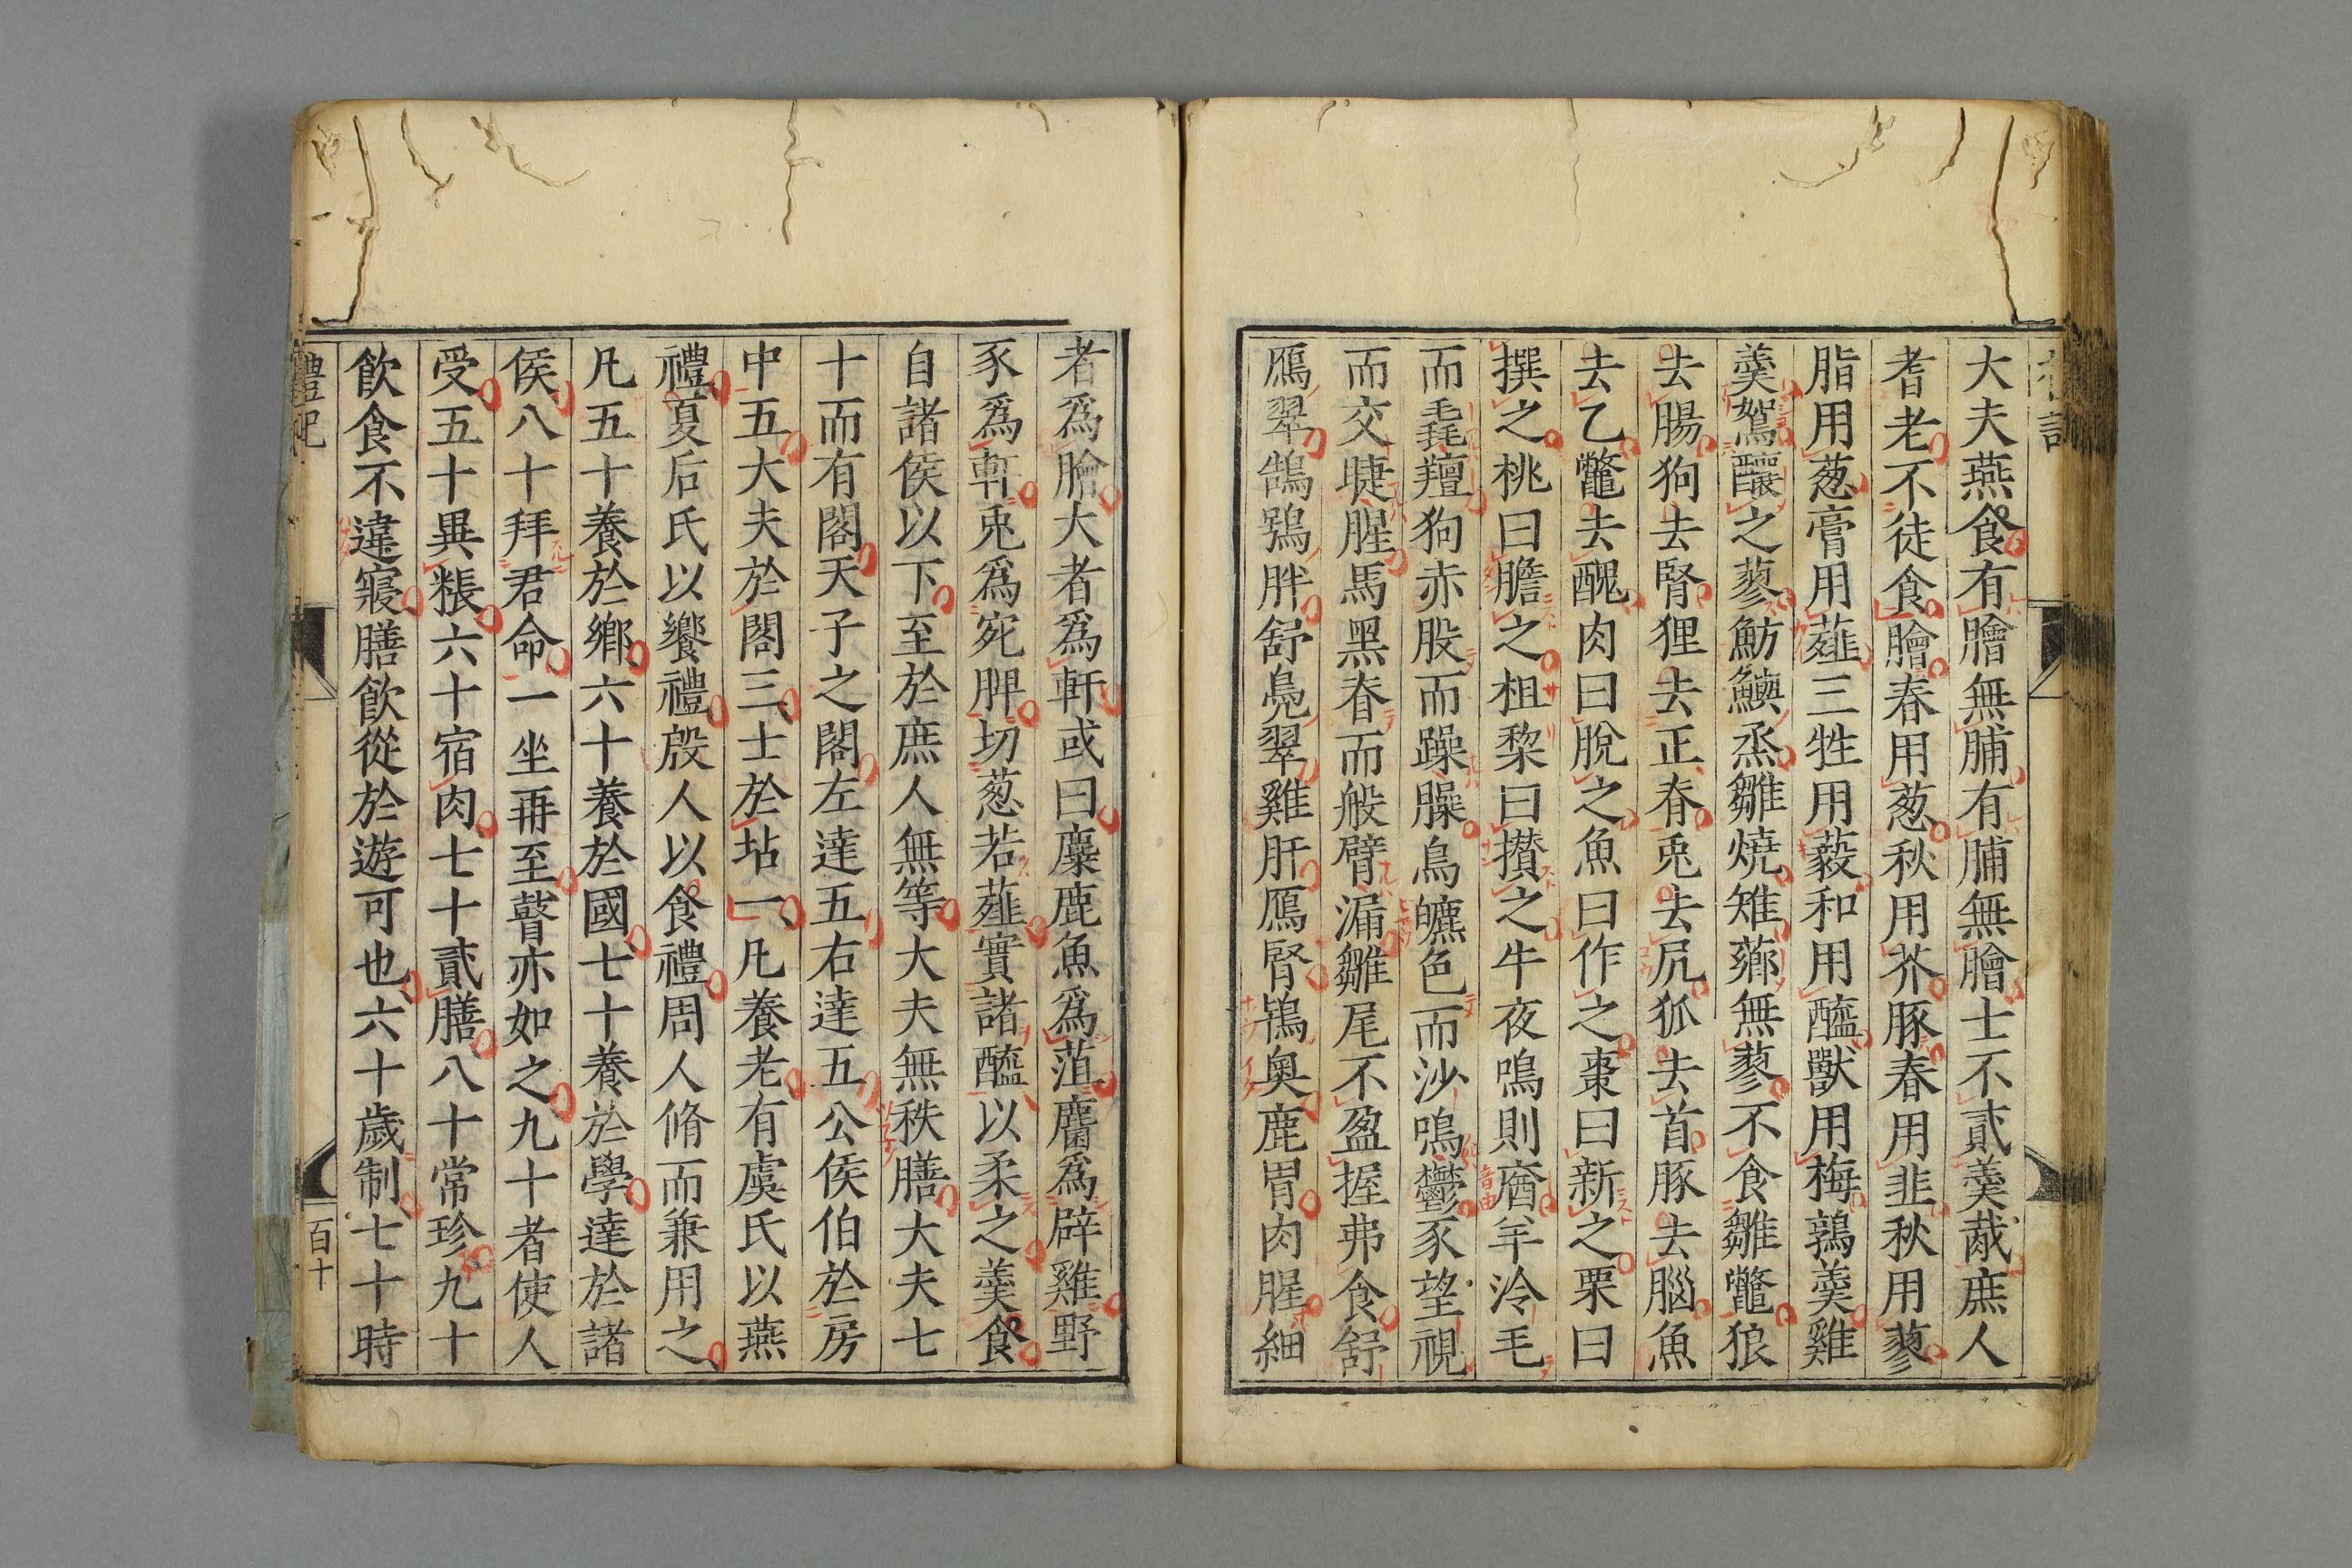 大夫燕食有膾無脯有脯無膾士不貳羹胾庶人
耆老不徒食膾春用葱秋用芥豚春用韭秋用蓼
脂用葱膏用薤三牲用藙和用醯獸用梅鶉羹雞
羹鴽釀之蓼魴鱮烝雛燒雉薌無蓼不食雛鼈狼
去腸狗去腎狸去正脊兎去尻狐去首豚去腦魚
去乙鼈去醜肉曰脫之魚曰作之棗曰新之栗曰
撰之桃曰膽之柤棃曰攢之牛夜鳴則庮羊泠毛
而毳羶狗赤股而躁臊鳥皫色而沙鳴鬱豕望視
而交睫腥馬黑脊而般臂漏雛尾不盈握弗食舒
鴈翠鵠鴞胖舒鳧翠雞肝鴈腎鴇奧鹿胃肉腥細
者爲膾大者爲軒或曰麋鹿魚爲菹麕爲辟雞野
豕爲軒兎爲宛脾切葱若薤實諸醯以柔之羹食
自諸侯以下至於庶人無等大夫無秩膳大夫七
十而有閣天子之閣左達五右達五公侯伯於房
中五大夫於閣三士於坫一凡養老有虞氏以燕
禮夏后氏以饗禮殷人以食禮周人脩而兼用之
凡五十養於鄉六十養於國七十養於學達於諸
侯八十拜君命一坐再至瞽亦如之九十者使人
受五十異粻六十宿肉七十貳膳八十常珍九十
飲食不違寢膳飲從於遊可也六十歲制七十時
禮記
百十